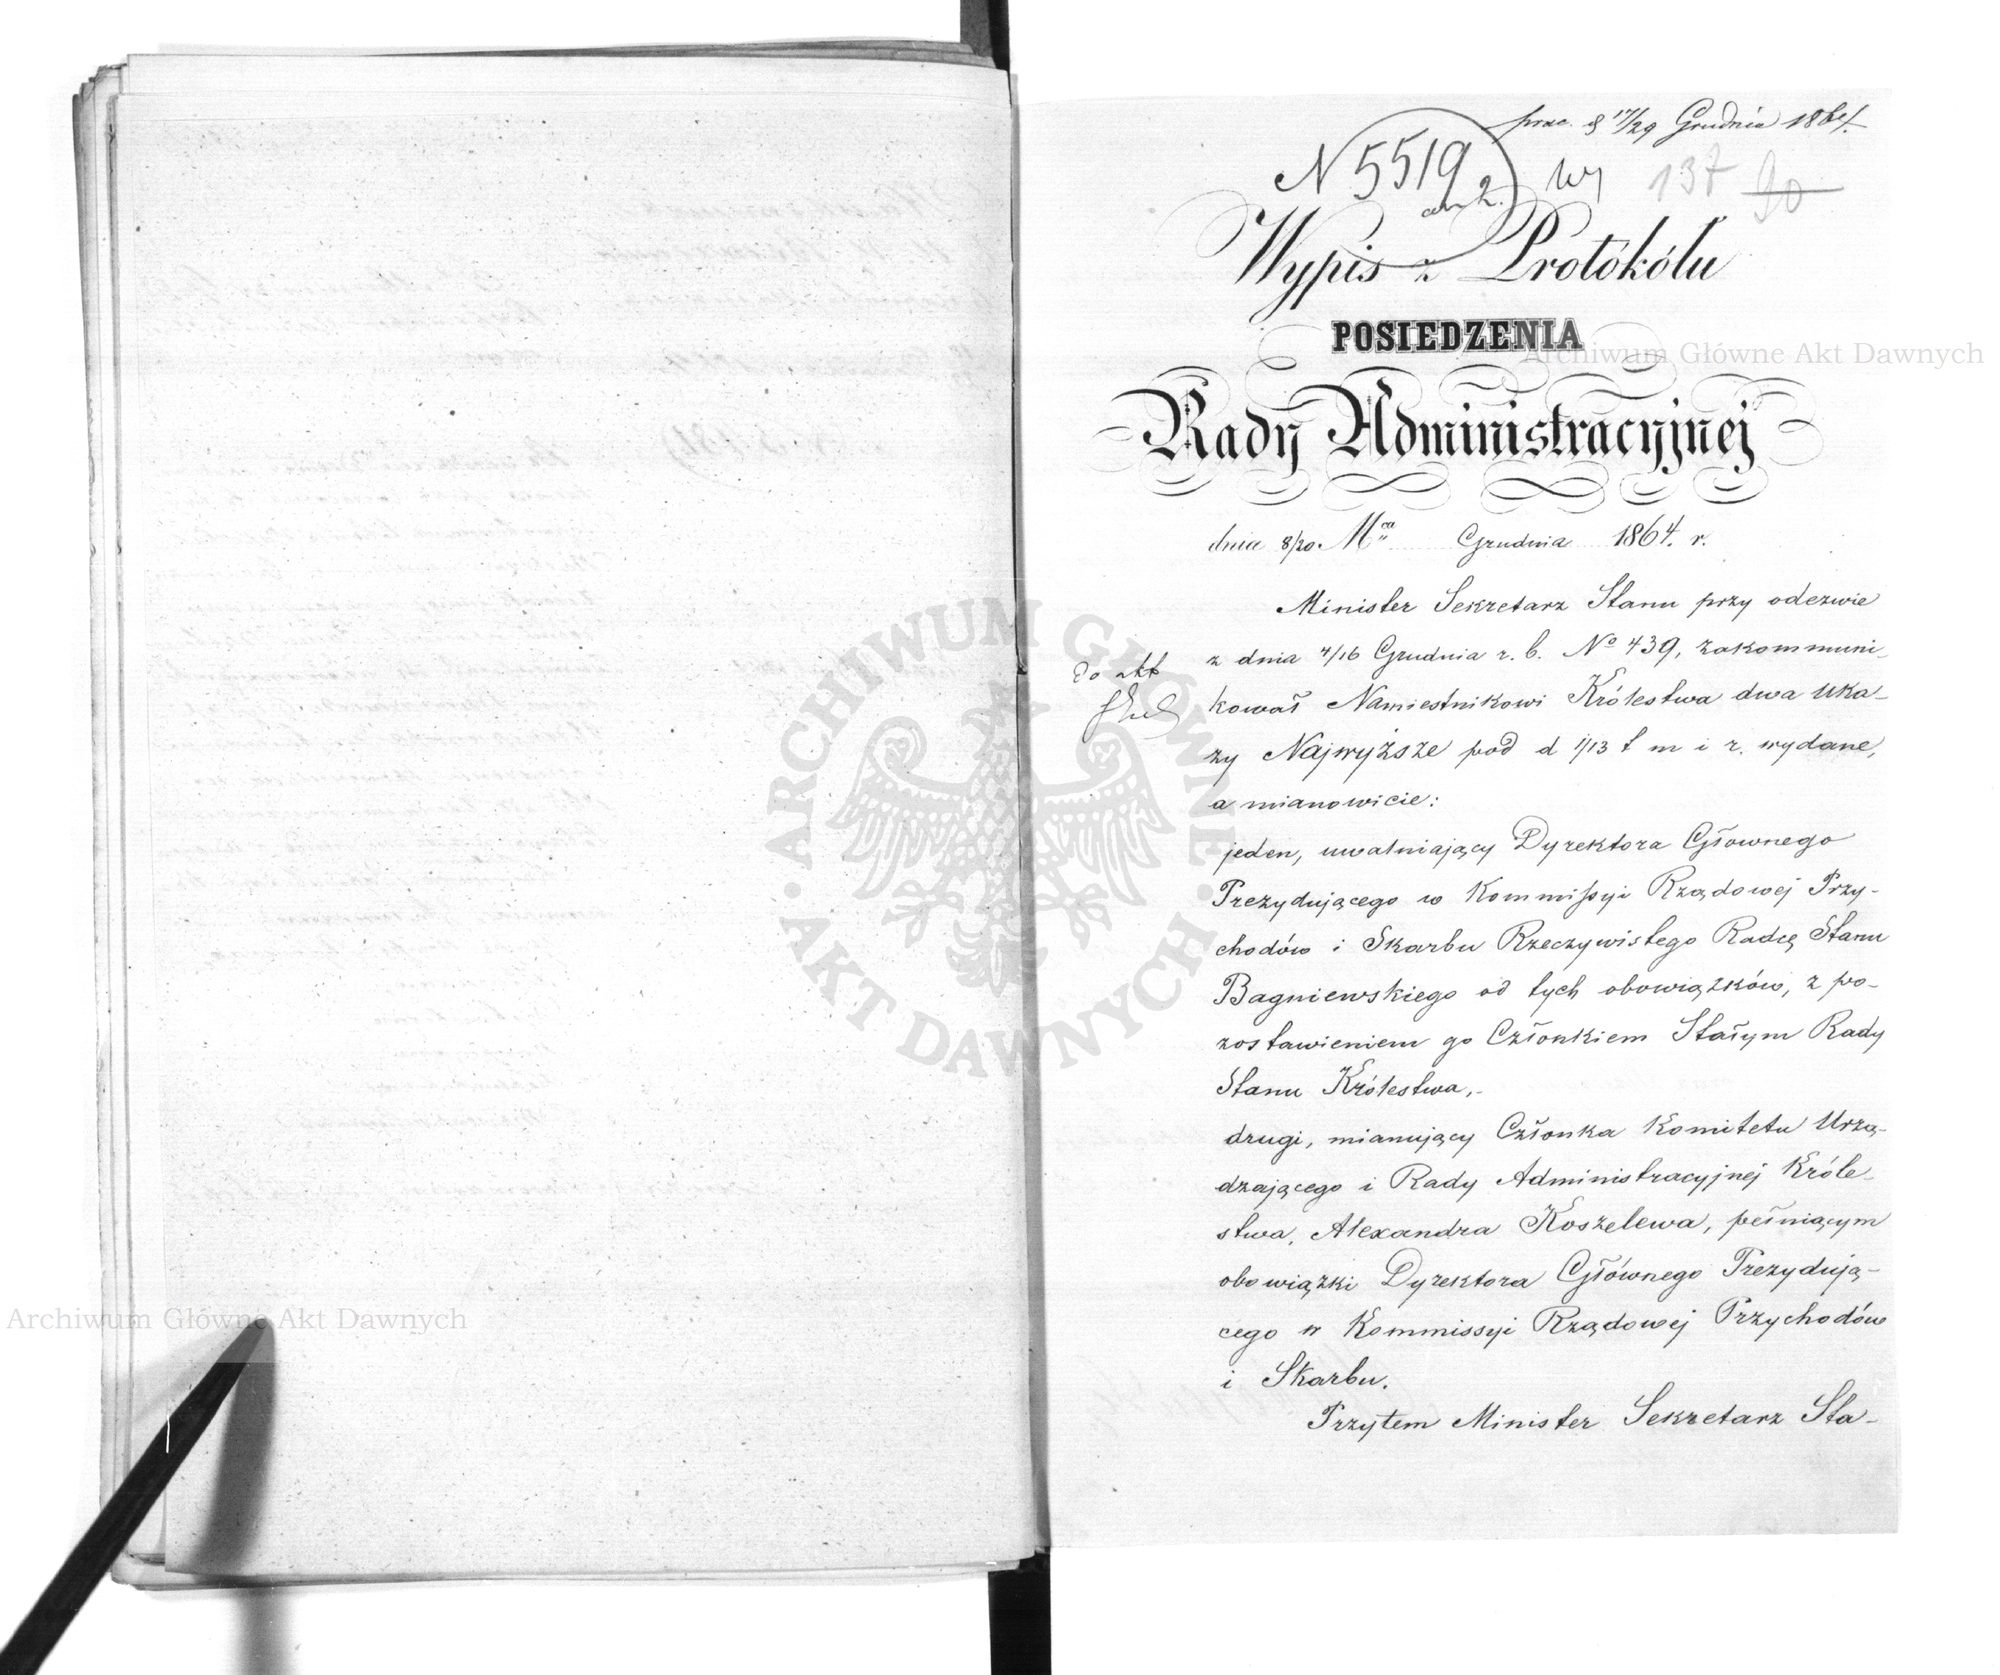 prac. d 17/29 Grudnia 1864.
N 5519 137 90
Wypis z Protokółu
POSIEDZENIA
Rady Administracyjnej
dnia 8/20 Mca Grudnia 1864. r.
Minister Sekretarz Stanu przy odezwie
z dnia 4/16 Grudnia r. b. No 439, zakommuni-
do akt
kował Namiestnikowi Królestwa dwa Uka-
zy Najwyższe pod d 1/13 t m i r. wydane,
a mianowicie:
jeden, uwalniający Dyrektora Głownego
Prezydującego w Kommissyi Rządowej Przy-
chodów i Skarbu Rzeczywistego Radcę Stanu
Bagniewskiego od tych obowiązków, z po-
zostawieniem go Członkiem Stałym Rady
Stanu Królestwa,-
drugi, mianujący Członka Komitetu Urzą-
dzającego i Rady Administracyjnej Króle-
stwa, Alexandra Koszelewa, pełniącym
obowiązki Dyrektora Głównego Prezydują-
cego w Kommissyi Rządowej Przychodów
i Skarbu.
Przytem Minister Sekretarz Sta-
Archiwum Główne Akt Dawnych
ARCHIWUM GŁÓWNE AKT DAWNYCH
Archiwum Główne Akt Dawnych